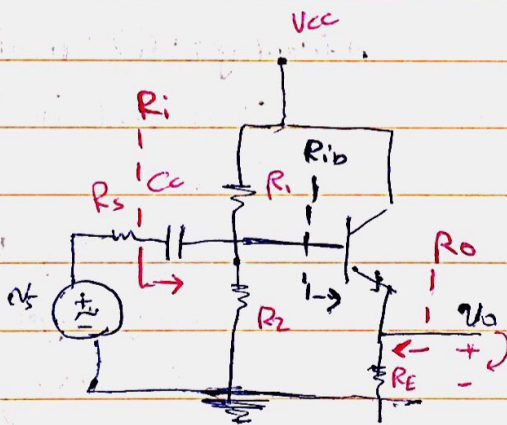 Vcc
Ri
Rib
R1
Rs
Cc
Ro
vs
+
-
R2
vo
+
-
RE